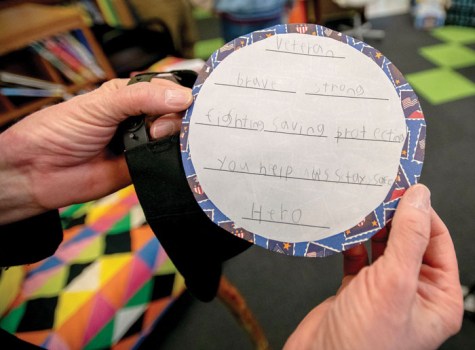 Veteran
brave strong
fighting saving protecting
you help us stay safe
Hero